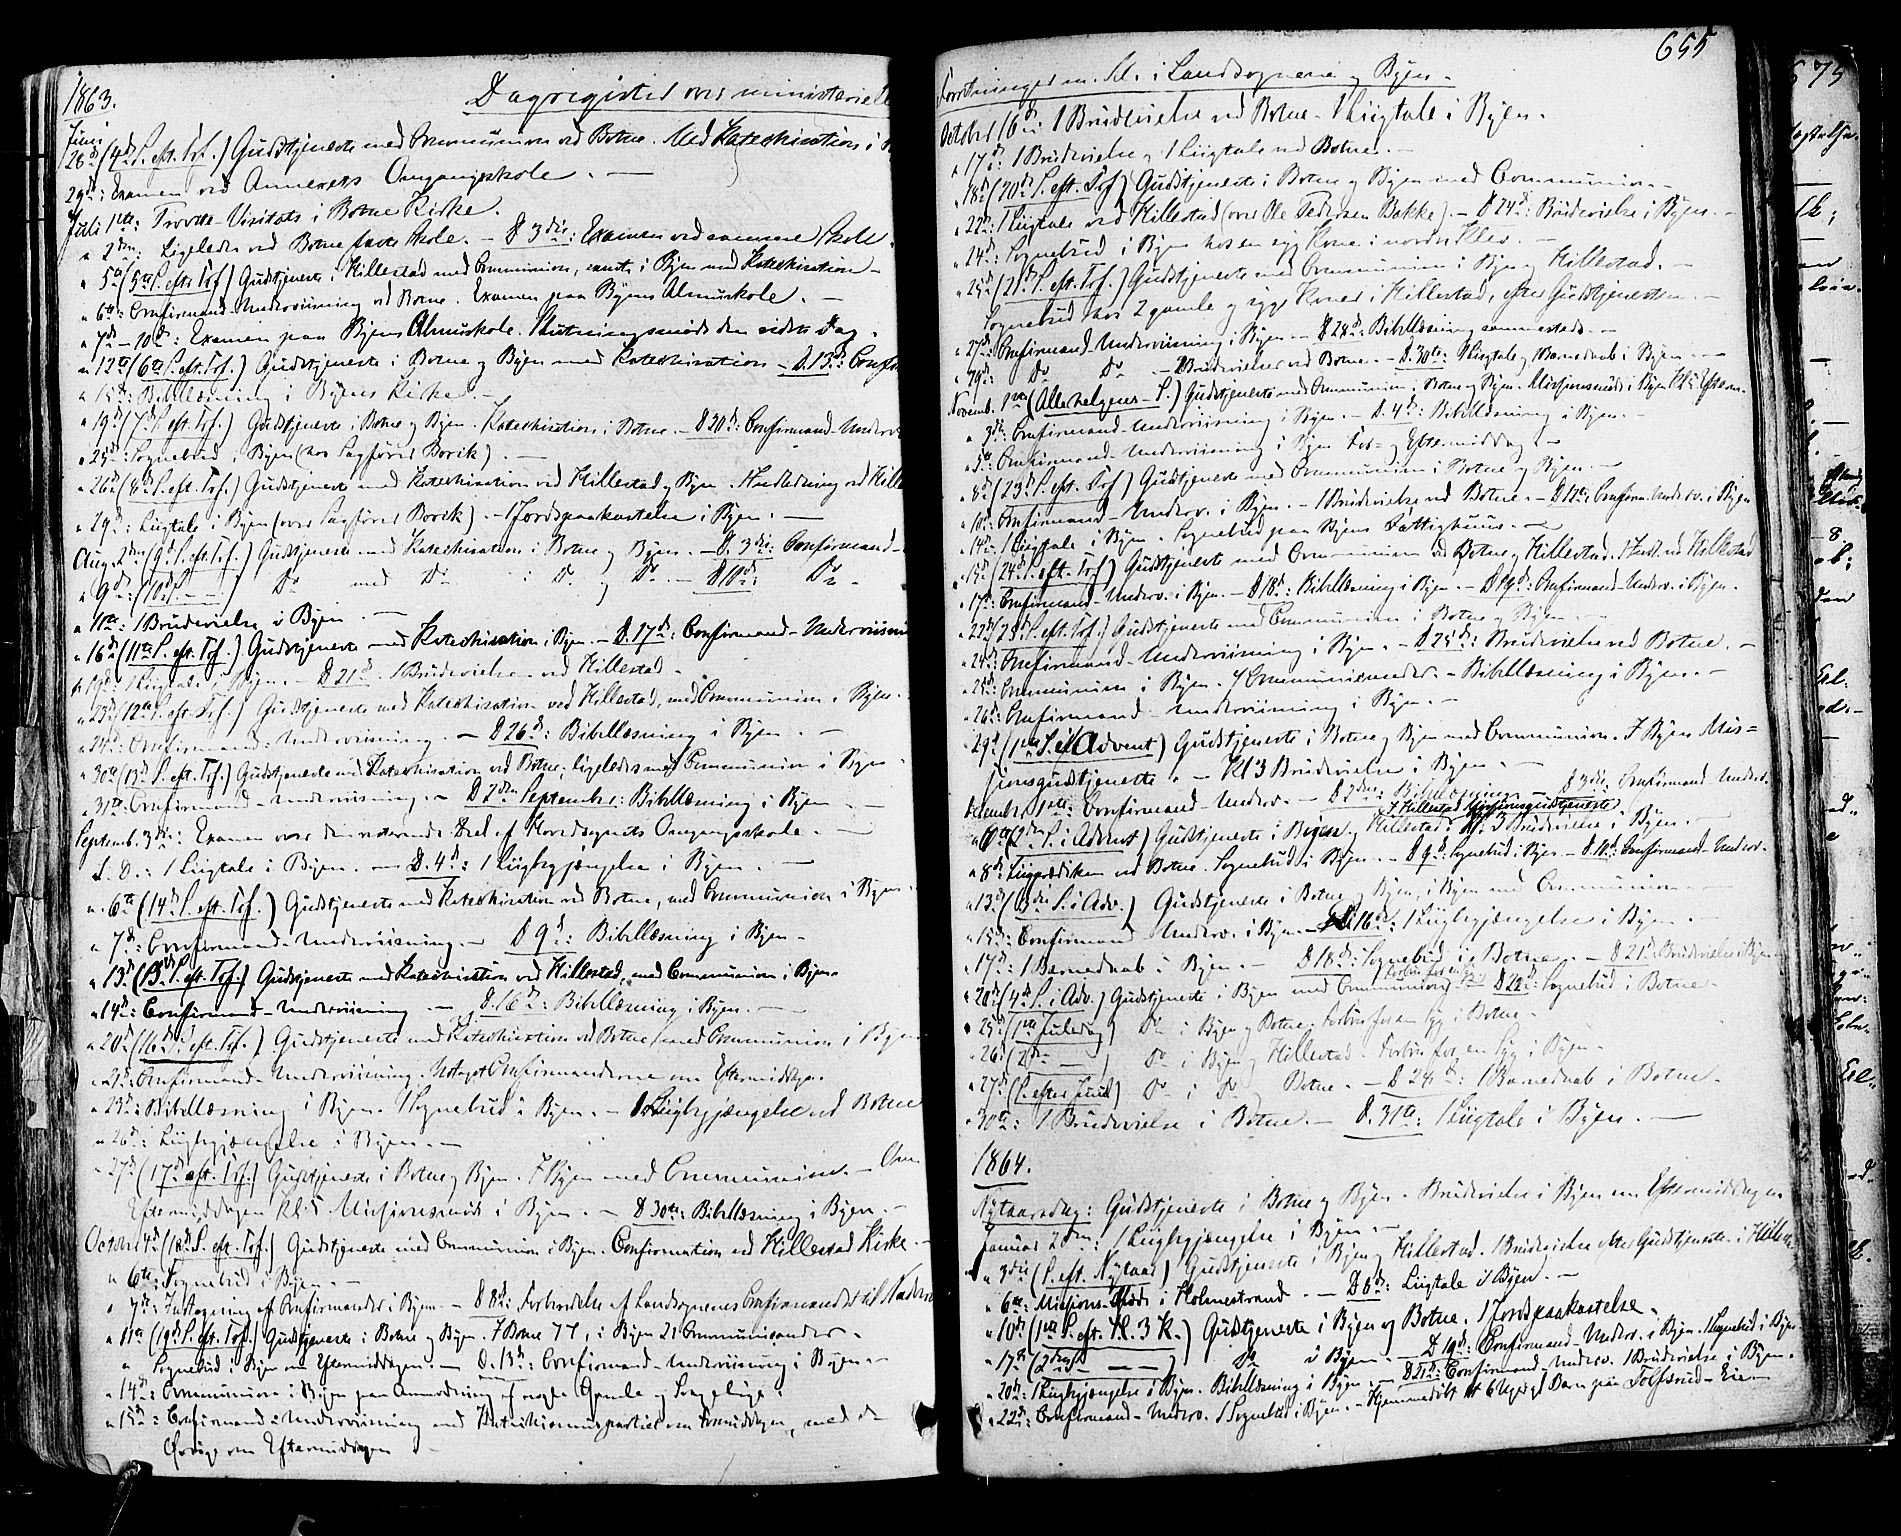 1863.
Dagregister over ministerielle
Juni
28d (4d S. eft. Tref.) Gudstjeneste med Communion ved Botne. Med Katechisation i
29d: Examen ved Annexets Omgangsskole. —
Juli 1ste: Provste-Visitats i Botne Kirke.
" 2den: Ligeledes ved Botne faste Skole. — D 3die: Examen ved samme Skole.
" 5te (5te S. efter Tref.) Gudstjeneste i Hillestad med Communion, samt i Byen med Katechisation —
" 6te: Confirmand-Underviisning ved Botne. Examen paa Byens Almuskole. —
" 7d – 10d: Examen paa Byens Almuskole. Slutningsmøde den sidste Dag.
" 12te (6te S. eft. Tref.) Gudstjeneste i Botne og Byen med Katechisation — D. 13d: Confir
" 15d: Bibellæsning i Byens Kirke. —
" 19d (7d S. eft. Tref.) Gudstjeneste i Botne og Byen. Katechisation i Botne — D 20d: Confirmand-Underv
" 25d: Sognebud i Byen (hos Sagfører Borik). —
" 26d (8d S. eft. Tref.) Gudstjeneste med Katechisation ved Hillestad og Byen. 1 Indledning ved Hille
" 29d: Liigtale i Byen (over Sagfører Borik). — 1 Jordspaakastelse i Byen. —
Aug. 2den (9d S. eft. Tref.) Gudstjeneste med Katechisation i Botne og Byen. — D. 3die: Confirmand-
" 9d: (10d S. —) Do med Do i Do og Do — D 10d: Do
" 11te: 1 Brudevielse i Byen —
" 16d (11te S. eft. Tref.) Gudstjeneste med Katechisation i Byen — D. 17d: Confirmand-Underviisning
" 19d: 1 Liigtale i Byen. — D 21d. 1 Brudevielse ved Hillestad —
" 23d (12te S. eft. Tref.) Gudstjeneste med Katechisation ved Hillestad, med Communion i Byen.
" 24d: Confirmand-Underviisning. — D 26d: Bibellæsning i Byen. —
" 30te (13d S. eft. Tref.) Gudstjeneste med Katechisation ved Botne, ligeledes med Communion i Byen
" 31te: Confirmand-Underviisning. — D 2den September: Bibellæsning i Byen —
Septemb. 3die: Examen over den nederste Deel af Hovedsognets Omgangsskole. —
S. D.: 1 Liigtale i Byen. — D. 4d: 1 Liigbegjængelse i Byen. —
" 6te (14d S. eft. Tref.) Gudstjeneste med Katechisation ved Botne, med Communion i Byen
" 7d: Confirmand-Underviisning. — D 9d: Bibellæsning i Byen —
" 13d (15d S. eft. Tref.) Gudstjeneste med Katechisation ved Hillestad, med Communion i Byen
" 14d: Confirmand-Underviisning. — D. 16d: Bibellæsning i Byen. —
" 20d (16d S. eft. Tref.) Gudstjeneste med Katechisation ved Botne, med Communion i Byen
" 21d: Confirmand-Underviisning. Confirmanderne om Eftermiddagen.
" 23d: Bibellæsning i Byen. 1 Sognebud i Byen. — 1 Liigbegjængelse ved Botne
" 26d: Liigbegjængelse i Byen. —
" 27d (17d eft. Tref.) Gudstjeneste i Botne og Byen. I Byen med Communion. — Om
Eftermiddagen Kl. 5 Missionsmøde i Byen. — D 30te: Bibellæsning i Byen. —
October 4d (18d S. eft. Tref.) Gudstjeneste med Communion i Byen. Confirmation ved Hillestad Kirke. —
" 6te: Sognebud i Byen. —
" 7d: Indtegning af Confirmander i Byen. — D 8d: Forberedelse af Landsognenes Confirmander til Nadver
" 11te (19d S. eft. Tref.) Gudstjeneste i Botne og Byen. I Botne 77, i Byen 21 Communicanter.
" Sognebud i Byen om Eftermiddagen. — D. 13d: Confirmand-Underviisning i Byen. —
" 14d: Communion i Byen paa Anmodning af nogle Gamle og Svagelige.
" 15d: Confirmand-Underviisning med om Formiddagen, med de
Øvrige om Eftermiddagen —
655
Forretninger m. M. i Landsognene og Byen.
October 16d: 1 Brudevielse ved Botne. 1 Liigtale i Byen.
" 17d: 1 Brudevielse og 1 Liigtale ved Botne. —
" 18d (20d S. eft. Tref.) Gudstjeneste i Botne og Byen med Communion. —
" 22d: 1 Liigtale ved Hillestad (over Ole Pedersen Bakke). — D 24d: Brudevielse i Byen. —
" 24d: Sognebud i Byen hos en syg Kone i —
" 25d (21d S. eft. Tref.) Gudstjeneste med Communion i Byen og Hillestad. —
Sognebud hos 2 gamle og syge Koner i Hillestad, efter Gudstjenesten. —
" 27d: Confirmand-Underviisning i Byen. — D 28d: Bibellæsning sammesteds. —
" 29d: Do Do — 2 Brudevielser ved Botne. — D. 30te: 1 Liigtale og Barnedaab i Byen. —
Novemb. 1ste (Allehelgens-S.) Gudstjeneste med Communion i Botne og Byen. Missionsmøde i Byen Kl. 5 Efterm.
" 3die: Confirmand-Underviisning i Byen. — D. 4d: Bibellæsning i Byen. —
" 5te: Confirmand-Underviisning i Byen For- og Eftermiddag. —
" 8d (23d S. eft. Tref.) Gudstjeneste med Communion i Botne og Byen. —
" 10d: Confirmand-Underv. i Byen. — 1 Brudevielse ved Botne. — D 12te: Confirm.-Underv. i Byen
" 14d: 1 Liigtale i Byen. Sognebud paa Byens Fattighuus. —
" 15d (24d S. eft. Tref.) Gudstjeneste med Communion ved Botne og Hillestad. 1 Indl. ved Hillestad
" 17d: Confirmand-Underv. i Byen. — D 18d: Bibellæsning i Byen. — D 19d: Confirmand-Underv. i Byen.
" 22d (25d S. eft. Tref.) Gudstjeneste med Communion i Botne og Byen. —
" 24d: Confirmand-Underviisning i Byen. — D 25d: Brudevielse ved Botne. —
" 25d: Communion i Byen. 7 Communicanter. — Bibellæsning i Byen. —
" 26d: Confirmand-Underviisning i Byen. —
" 29d (1ste S. i Advent) Gudstjeneste i Botne og Byen med Communion. I Byen Mis=
sionsgudstjeneste. — Kl 3 Brudevielse i Byen. —
December 1ste: Confirmand-Underv. — D 2den: Bibellæsning — D 3die: Confirmand-Underv.
I Hillestad Missionsgudstjeneste
" 6te (2den S. i Advent) Gudstjeneste i Byen og Hillestad. Kl. 3 Brudevielse i Byen. —
" 8d: Liigprædiken ved Botne. Sognebud i Byen. — D 9d: Sognebud i Byen — D 10d: Confirmand-Underv.
" 13d (3die S. i Adv.) Gudstjeneste i Botne og Byen, i Byen med Communion —
" 15d: Confirmand-Underv. i Byen. — D 16d: 1 Liigbegjængelse i Byen. —
" 17d: 1 Barnedaab i Byen. — D 18d: Sognebud i Botne. — D 21d: Brudevielse i Byen
" 20d (4d S. i Adv.) Gudstjeneste i Byen med Communion — D 22d: Sognebud i Botne.
" 25d (1ste Juledag) Do i Byen og Botne. Forbøn for en Syg i Botne.
" 26d (2den —) Do i Byen og Hillestad. Forbøn for en Syg i Byen.
" 27d (S. efter Juul) Do i Do Botne. — D 24d: 1 Barnedaab i Botne.
" 30te: 1 Brudevielse i Botne. — D. 31te: 1 Liigtale i Byen. —
1864.
Nytaarsdag: Gudstjeneste i Botne og Byen. Brudevielse i Byen om Eftermiddagen
Januar 2den: 1 Liigbegjængelse i Byen. —
" 3die (S. eft. Nytaar) Gudstjeneste i Byen og Hillestad. 1 Brudevielse efter Gudstjeneste i Hillest
" 6te: Missions-Møde i Holmestrand. — D 8d: Liigtale i Byen. —
" 10d (1ste S. eft. H. 3 K.) Gudstjeneste i Byen og Botne. 1 Jordspaakastelse.
" 17d (2den — —) Do i Byen. — D 19d: Confirmand-Underv. i Byen. 1 Sognebud i Byen
" 20d: 1 Liigbegjængelse i Byen. Bibellæsning i Byen. — D 21d: Confirmand-Underv. 1 Brudevielse i Byen.
" 22d: Confirmand-Underv. 1 Sognebud i Byen. — Hjemmedøbt et sygt Barn paa Tofsrud-Eie